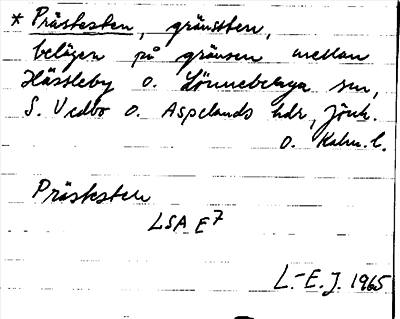 * Prästesten, gränssten,
belägen på gränsen mellan
Hässleby o. Lönneberga snr,
S. Vedbo o. Aspelands hdr, Jönk.
o. Kalm. l.
Prästesten
LSA E7
L.-E. J. 1965